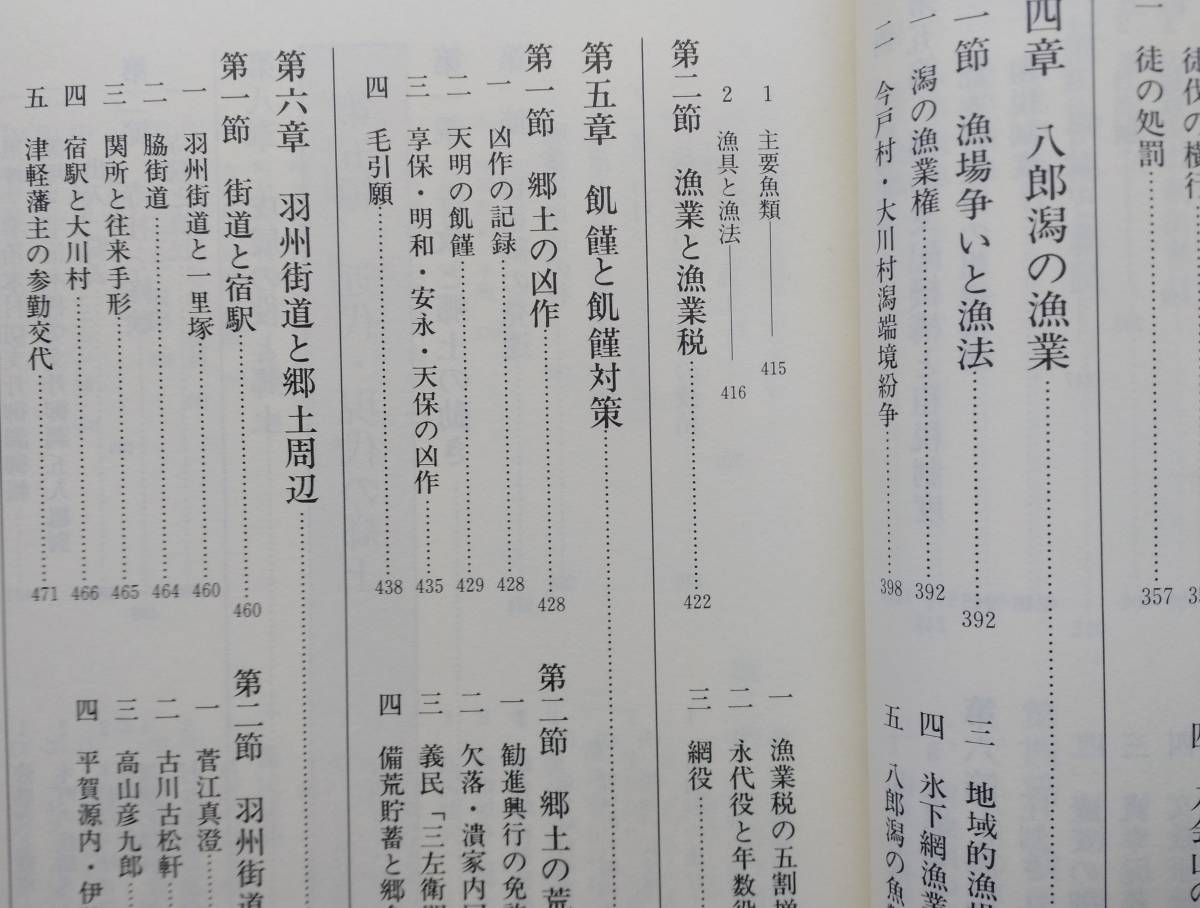 徒伐の横行
徒の処罰……357
四章 八郎潟の漁業
一節 漁場争いと漁法……392
一 潟の漁業権……392
二 今戸村・大川村潟端境紛争……398
三 地域的漁場
四 氷下網漁業
五 八郎潟の魚
1 主要魚類――415
2 漁具と漁法――416
第二節 漁業と漁業税……422
一 漁業税の五割増
二 永代役と年数役
三 網役……
第五章 飢饉と飢饉対策……
第一節 郷土の凶作……428
一 凶作の記録……428
二 天明の飢饉……429
三 享保・明和・安永・天保の凶作……435
四 毛引願……438
第二節 郷土の荒
一 勧進興行の免許
二 欠落・潰家内
三 義民「三左衛門
四 備荒貯蓄と郷
第六章 羽州街道と郷土周辺……
第一節 街道と宿駅……460
一 羽州街道と一里塚……460
二 脇街道……464
三 関所と往来手形……465
四 宿駅と大川村……466
五 津軽藩主の参勤交代……471
第二節 羽州街道
一 菅江真澄……
二 古川古松軒……
三 高山彦九郎……
四 平賀源内・伊